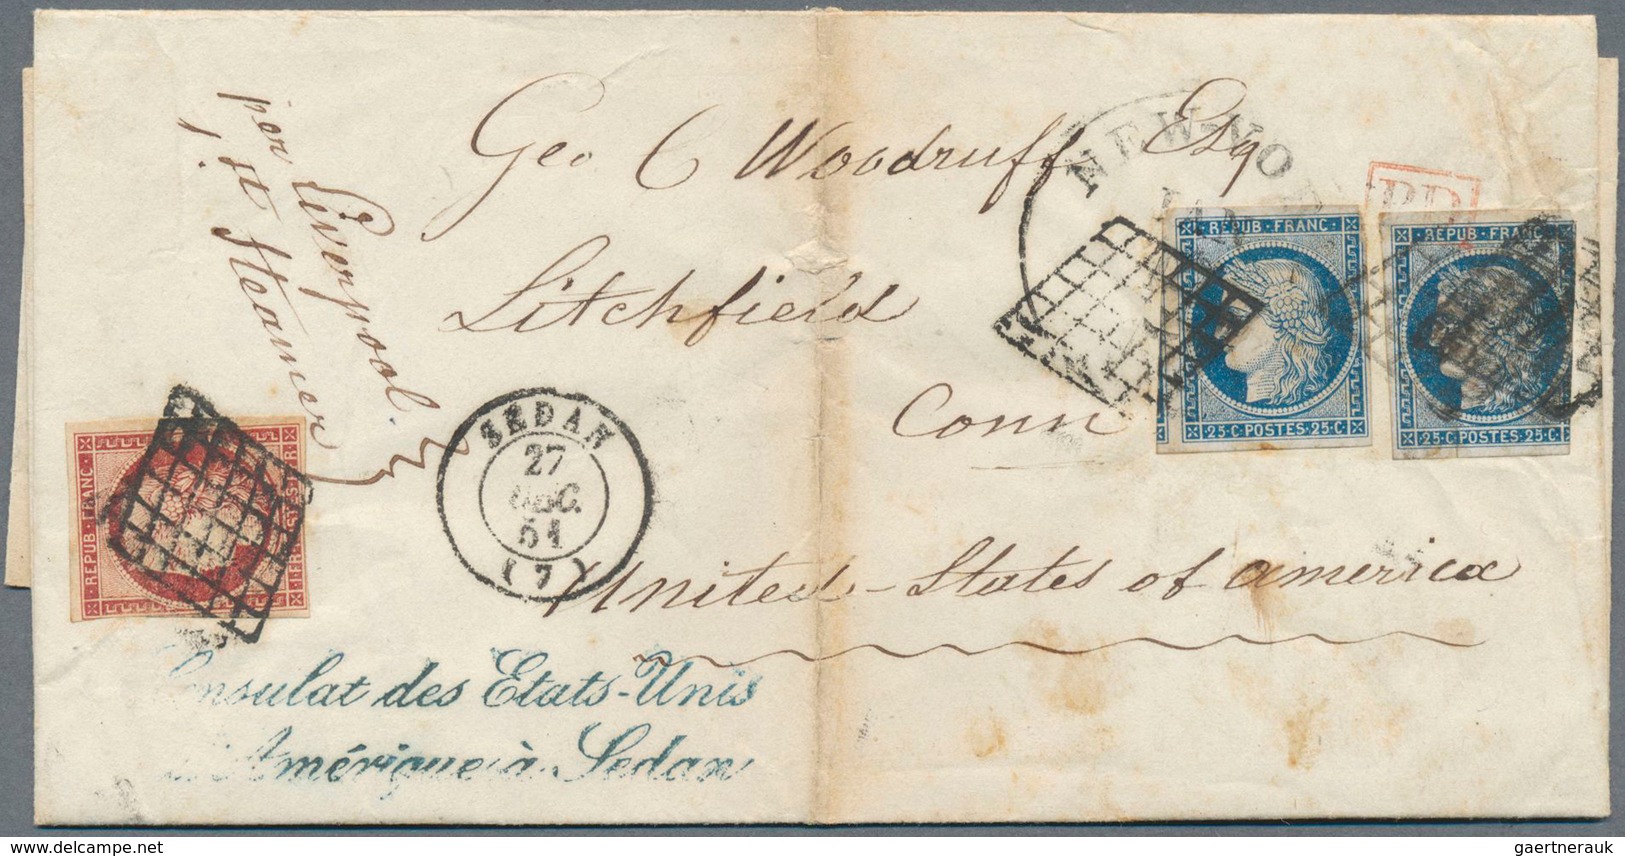 per Liverpool
1. st Steamer
Geo C Woodruff Esq
Litchfield
Conn
United-States of america
NEW-YO
JAN
PD
REPUB·FRANC·
25·C POSTES·25·C·
REPUB·FRANC·
25·C POSTES·25·C·
REPUB·FRANC·
1·FR·POSTES·1·FR·
SEDAN
27
DEC.
51
(7)
Consulat des Etats-Unis
d'Amérique à Sedan
gaertnerauk